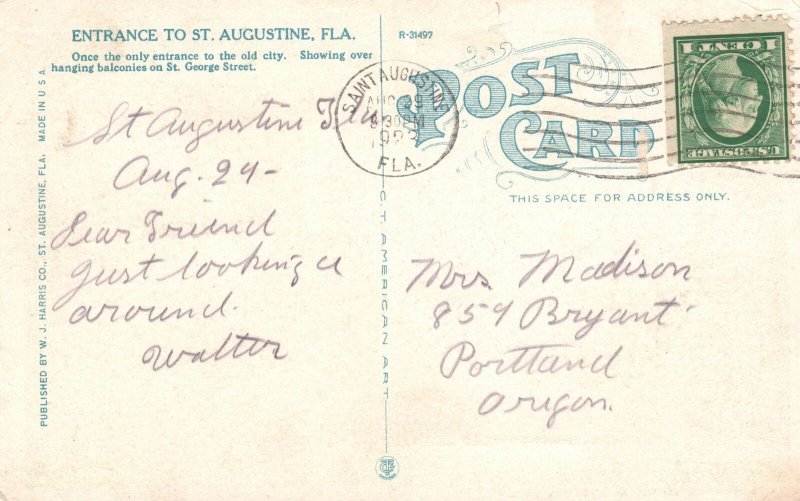 ENTRANCE TO ST. AUGUSTINE, FLA.
Once the only entrance to the old city. Showing over
hanging balconies on St. George Street.
R-31497
POST
CARD
THIS SPACE FOR ADDRESS ONLY.
SAINT AUGUSTINE
AUG
30 PM
1923
FLA.
1 CENT 1
U.S. POSTAGE
PUBLISHED BY W. J. HARRIS CO., ST. AUGUSTINE, FLA. MADE IN U S A
C.T. AMERICAN ART
St Augustine Fla
Aug. 24-
Dear Friend
Just looking
around.
Walter
Mrs. Madison
854 Bryant
Portland
Oregon.